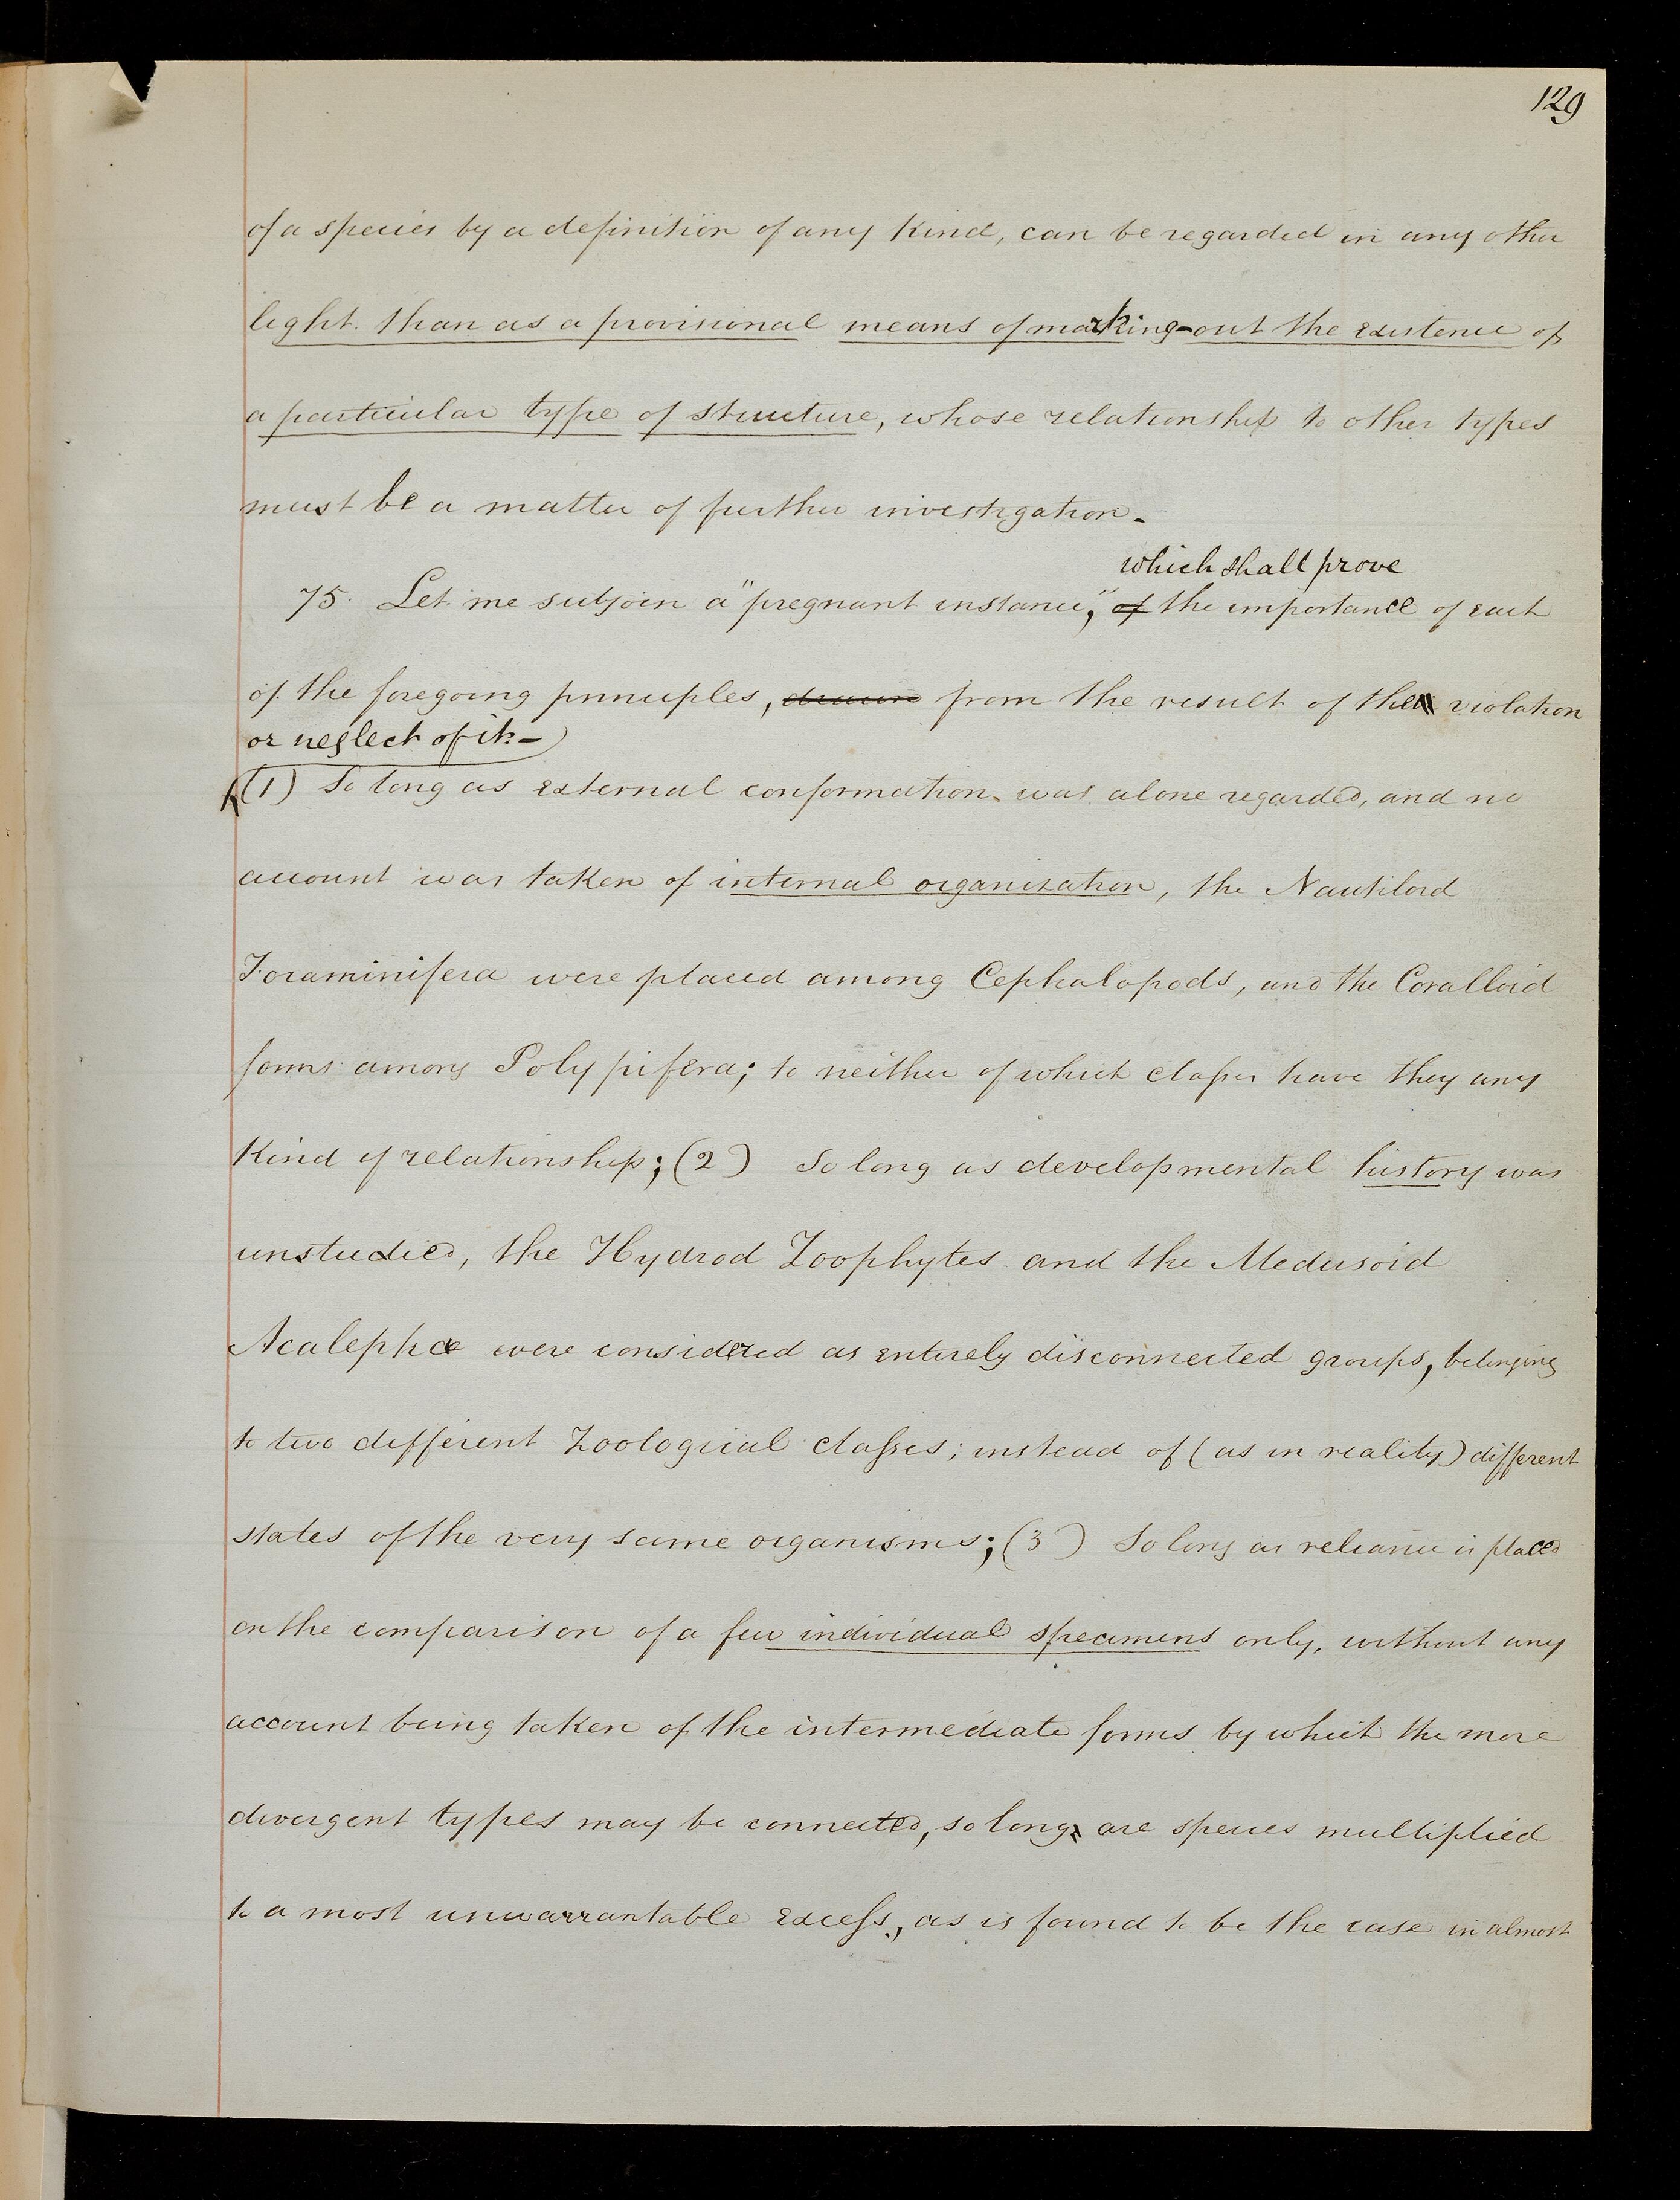 129
of a species by a definition of any kind, can be regarded in any other
light than as a provisional means of marking-out the existence of
a particular type of structure, whose relationship to other types
must be a matter of further investigation.
which shall prove
75. Let me subjoin a "pregnant instance," of the importance of each
of the foregoing principles, drawn from the result of the violation
or neglect of it.—
(1) So long as external conformation was alone regarded, and no
account was taken of internal organization, the Nautiloid
Foraminifera were placed among Cephalopods, and the Coralloid
forms among Polypifera; to neither of which classes have they any
kind of relationship; (2) So long as developmental history was
unstudied, the Hydroid Zoophytes and the Medusoid
Acalephæ were considered as entirely disconnected groups, belonging
to two different Zoological classes; instead of (as in reality) different
states of the very same organisms; (3) So long as reliance is placed
on the comparison of a few individual specimens only, without any
account being taken of the intermediate forms by which the more
divergent types may be connected, so long are species multiplied
to a most unwarrantable excess, as is found to be the case in almost